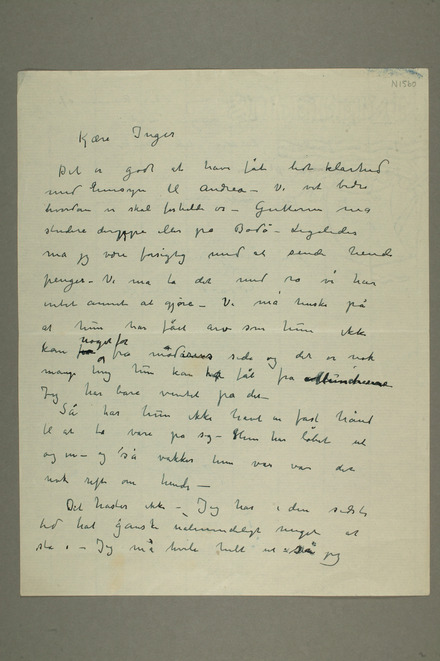 N1560
Kære Inger
Det er godt at have fåt lidt klarhed
med hensyn til Andrea – Vi vet bedre
hvordan vi skal forholde os – Gutterne må
studere deroppe eller på Bodö – Ligeledes
må jeg være forsigtig med at sende hende
penger – Vi må ta det med ro vi har
intet annet at gjöre – Vi må huske på
at hun har fået arv som hun ikke
noget for
kan fra side og det er nok
mange ting hun kan ha fåt fra
Jeg har bare ventet på det –
Så har hun ikke havt en fast hånd
til at ta vare på sig – Hun har löbet ut
og in – og så vakker hun var var det
nok rift om hende –
Det haster ikke – Jeg har i den sidste
tid hat ganske ualmindeligt meget at
stå i – Jeg må hvile helt ut så jeg